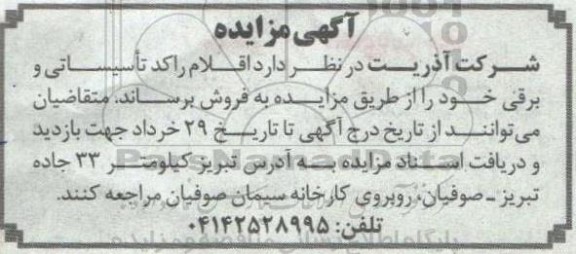 آگهی مزایده
شرکت آذریت در نظر دارد اقلام راکد تأسیساتی و
برقی خود را از طریق مزایده به فروش برساند، متقاضیان
می‌توانند از تاریخ درج آگهی تا تاریخ ۲۹ خرداد جهت بازدید
و دریافت اسناد مزایده به آدرس تبریز کیلومتر ۳۳ جاده
تبریز ـ صوفیان، روبروی کارخانه سیمان صوفیان مراجعه کنند.
تلفن: ۰۴۱۴۲۵۲۸۹۹۵